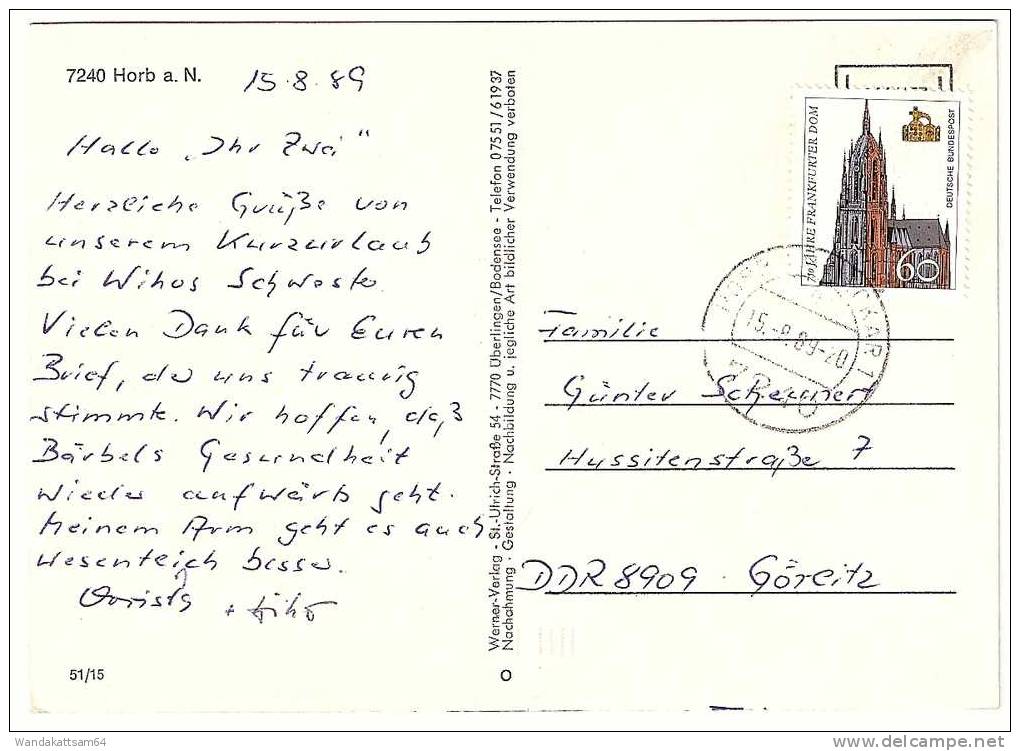 7240 Horb a. N.
15.8.89
Hallo „Ihr Zwei"
Herzliche Grüße von
unserem Kurzurlaub
bei Wihos Schwester
Vielen Dank für Euren
Brief, der uns traurig
stimmte. Wir hoffen, daß
Bärbels Gesundheit
wieder aufwärts geht.
Meinem Arm geht es auch
wesentlich besser.
51/15
Werner-Verlag - St.-Ulrich-Straße 54 - 7770 Überlingen/Bodensee - Telefon 07551/61937
Nachahmung · Gestaltung · Nachbildung u. jegliche Art bildlicher Verwendung verboten
O
750 JAHRE FRANKFURTER DOM
DEUTSCHE BUNDESPOST
60
15.-8.89-20
7240
Familie
Günter
Hussitenstraße 7
DDR 8909 Görlitz
Wandakattsam64
delcampe.net